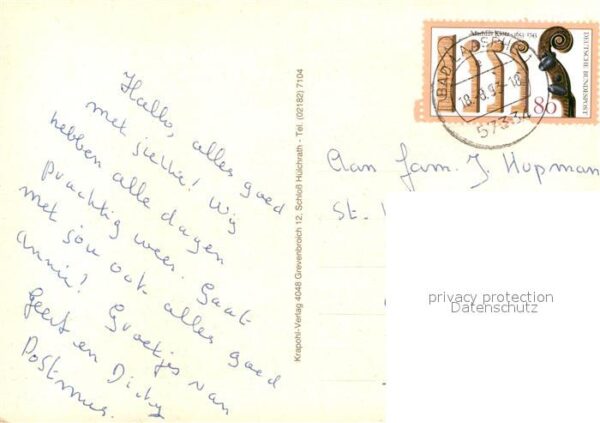 Hallo, alles goed
met jullie! Wij
hebben alle dagen
prachtig weer. Gaat
met jou ook alles goed
Annie! Groetjes van
Geert en Dicky
Postmus.
Krapohl-Verlag 4048 Grevenbroich 12, Schloß Hülchrath - Tel. (02182) 7104
DEUTSCHE BUNDESPOST
86
BAD LAASPHE
18.-8.93-18
57334
Aan fam. J. Hopman
St.
privacy protection
Datenschutz